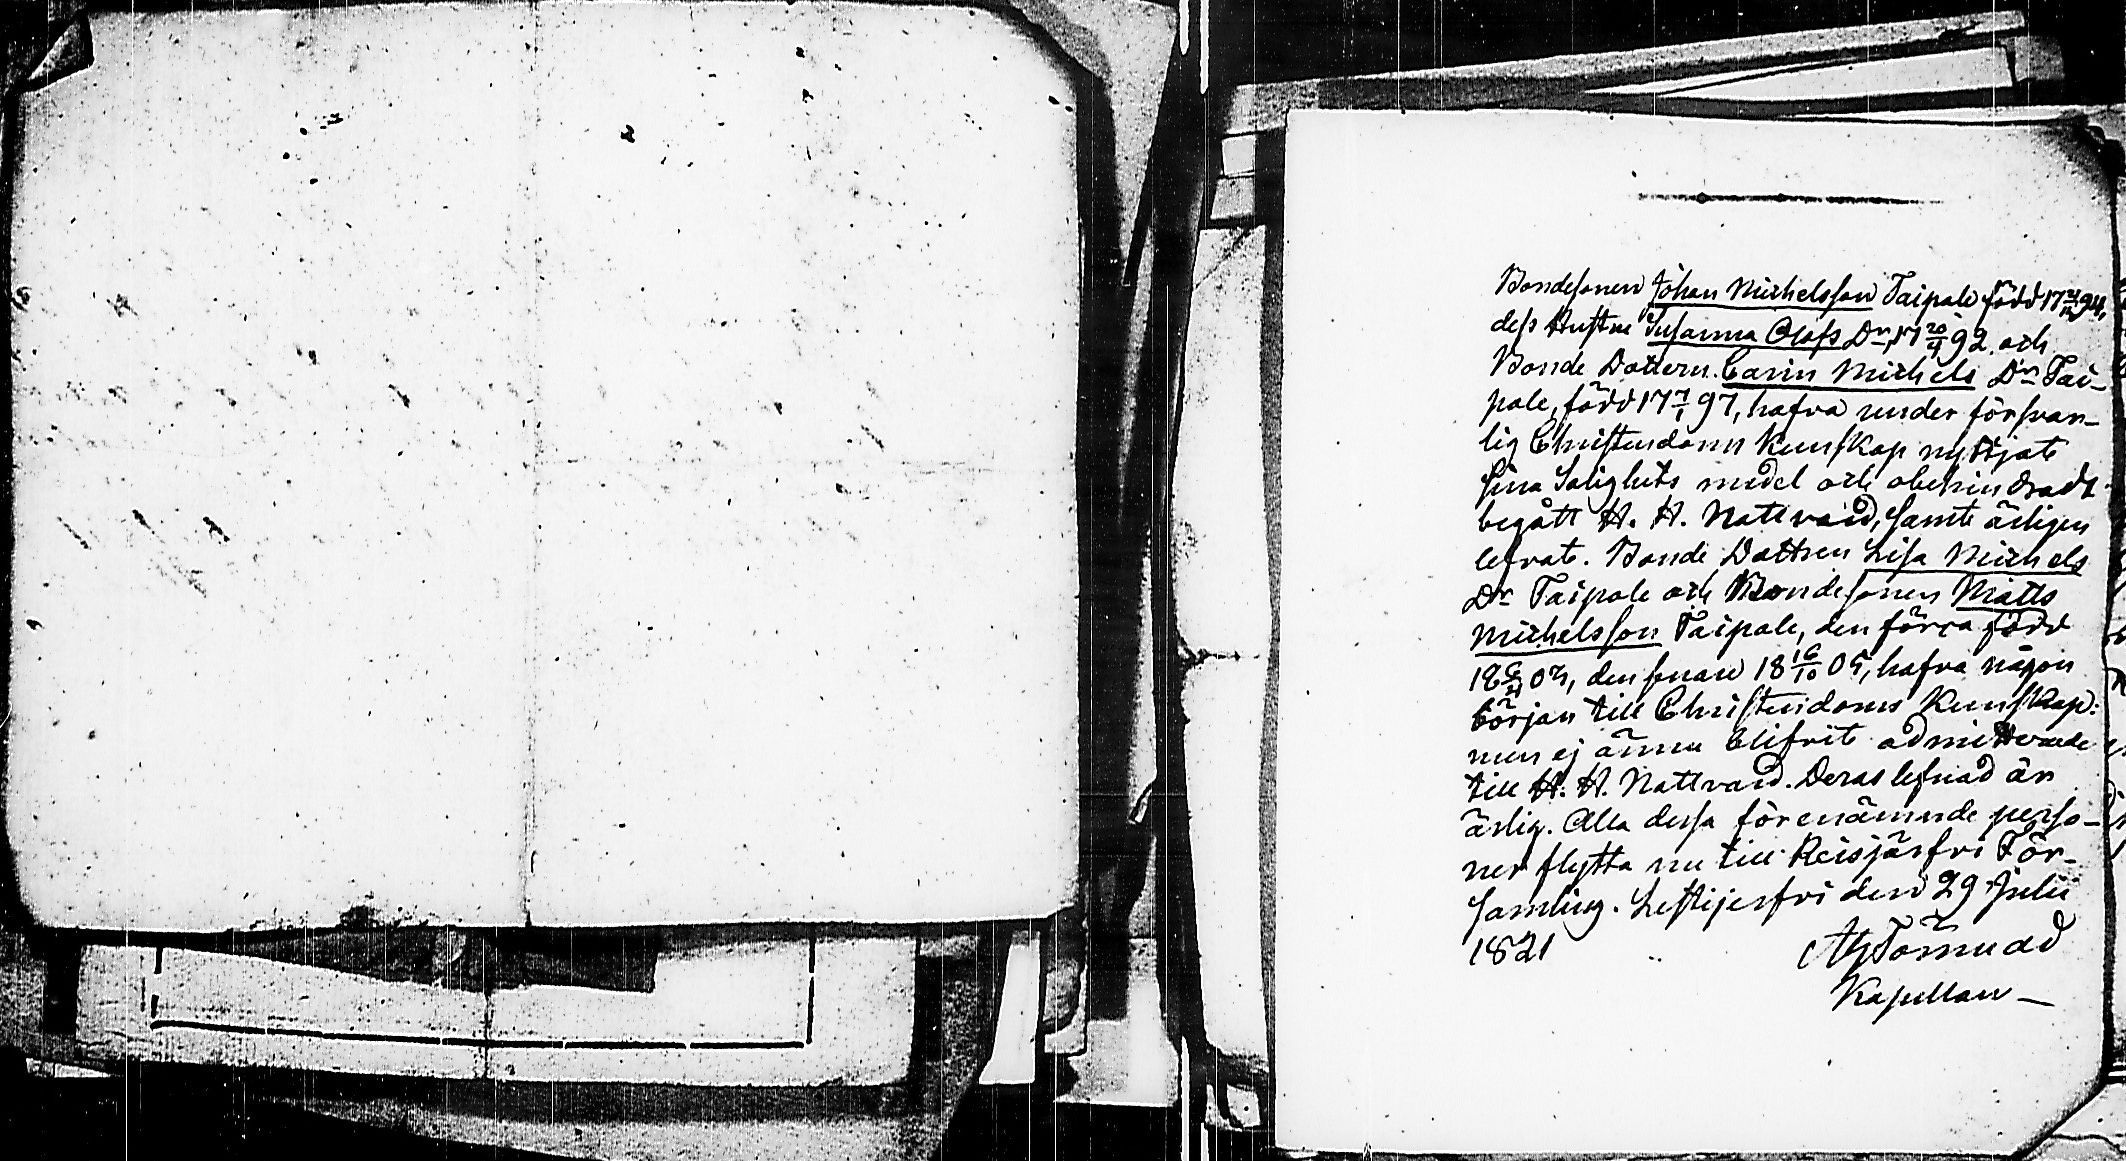 Bondesonen Johan Michelsson Taipale född 17 21/12 94,
dess Hustru Susanna Olofs Dr, 17 20/4 92. och
Bonde Dottern Carin Michels Dr Tai-
pale, född 17 7/1 97, hafva under försvar-
lig Christendoms Kunskap nyttjat
sina Salighets medel och obehindradt
begått H. H. Nattvard, samt ärligen
lefvat. Bonde Dottren Lisa Michels
Dr Taipale och Bondesonen Matts
Michelsson Taipale, den förra född
18 6/4 03, den senare 18 16/10 05, hafva någon
början till Christendoms Kunskap:
men ej ännu blifvit admitterade
till H. H. Nattvard. Deras lefnad är
ärlig. Alla dessa förenämnde perso-
ner flytta nu till Reisjärfvi För-
samling. Lestijerfvi den 29 Julii
1821
Törnudd
Kapellan